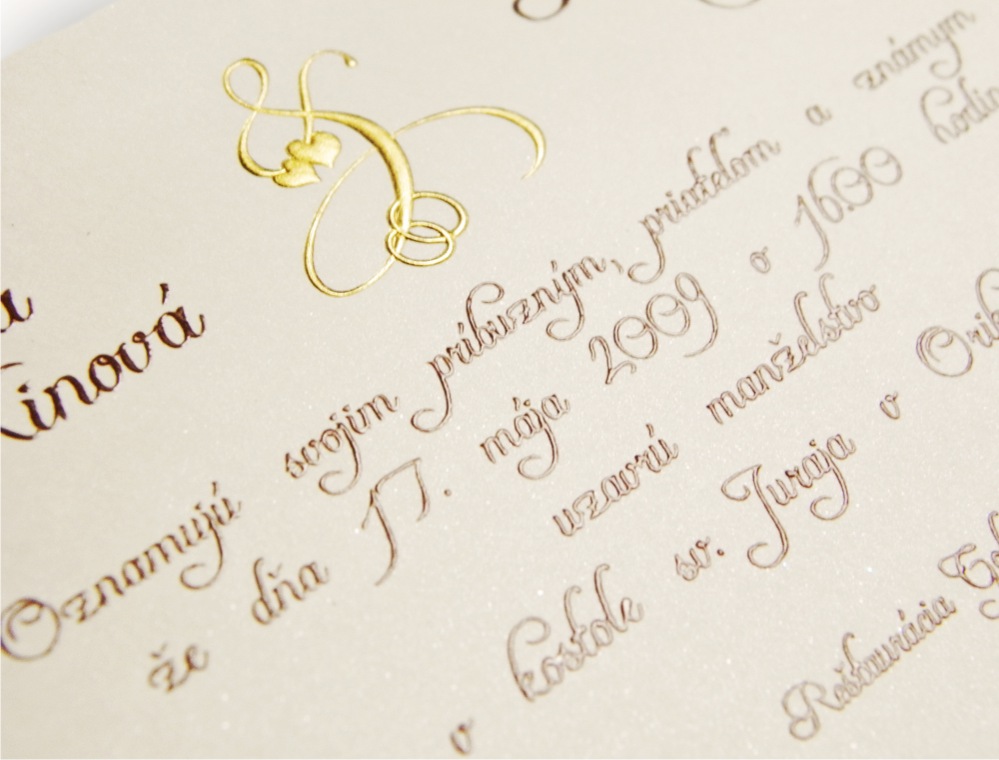 Oznamujú svojim príbuzným, priateľom a známym
že dňa 17. mája 2009 o 16.00
uzavrú manželstvo
v kostole sv. Juraja v
Reštaurácia